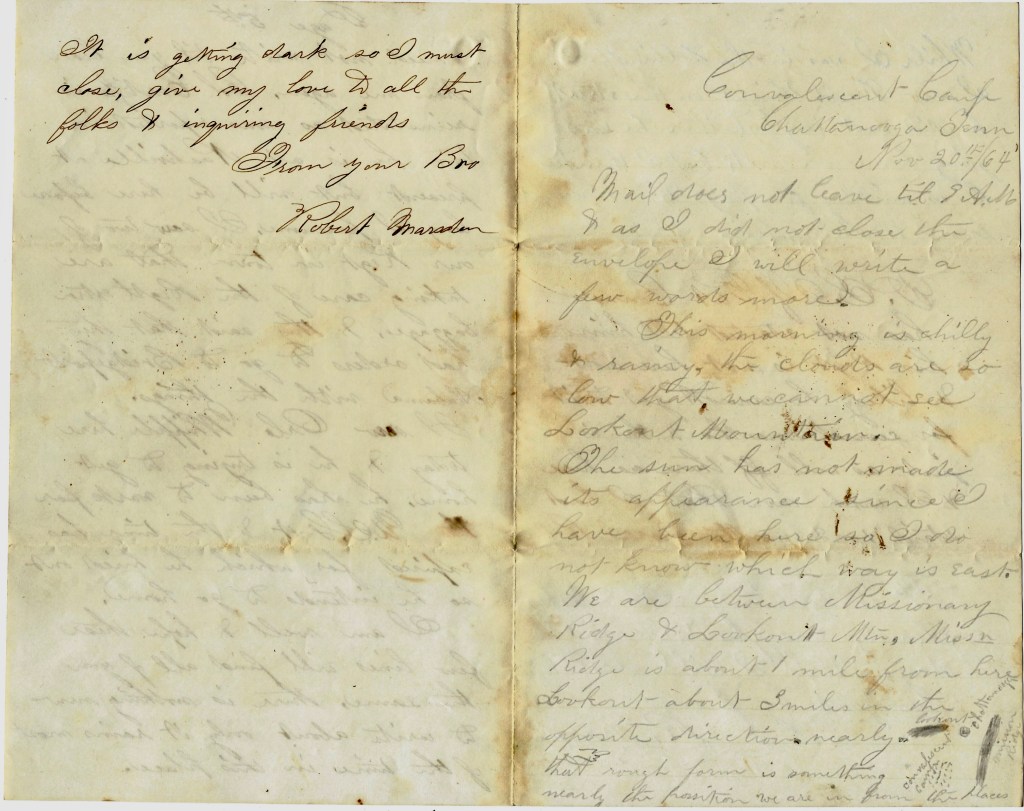 It is getting dark so I must
close, give my love to all the
folks & inquiring friends
From your Bro
Robert Marsden
Convalescent Camp
Chattanooga Tenn
Nov 20th/64
Mail does not leave til 8 A.M
& as I did not close the
envelope I will write a
few words more.
This morning is chilly
& rainy, the clouds are so
low that we cannot see
Lookout Mountain.
The sun has not made
its appearance since I
have been here so I do
not know which way is east.
We are between Missionary
Ridge & Lookout Mtn, Missn
Ridge is about 1 mile from here
Lookout about 3 miles in the
opposite direction nearly.
that rough form is something
nearly the position we are in from the places
Lookout
Chattanooga
Convalescent
Camp
Ridge